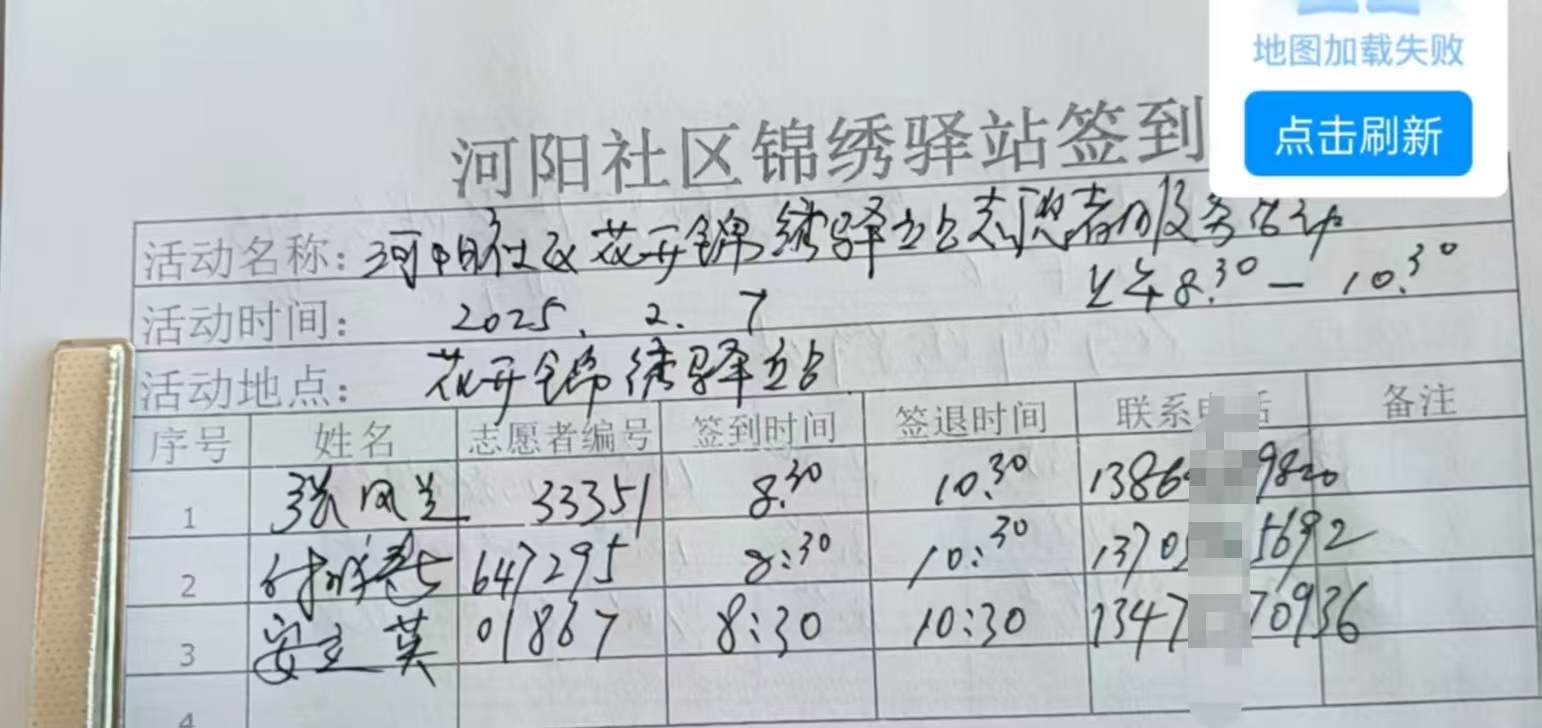 地图加载失败
点击刷新
河阳社区锦绣驿站签到
活动名称：河阳社区花开锦绣驿站志愿者服务活动
活动时间： 2025.2.7 上午8:30－10:30
活动地点： 花开锦绣驿站
序号 姓名 志愿者编号 签到时间 签退时间 联系电话 备注
1 张凤兰 33351 8:30 10:30 1386 9820
2 647295 8:30 10:30 1370 5692
3 安立英 01867 8:30 10:30 1347 70936
4